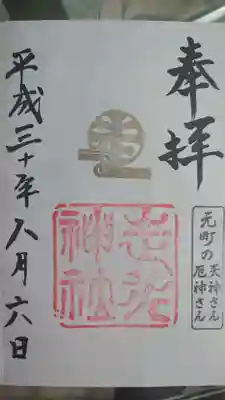 奉拝
元町の
天神さん
厄神さん
走水
神社
平成三十年八月六日